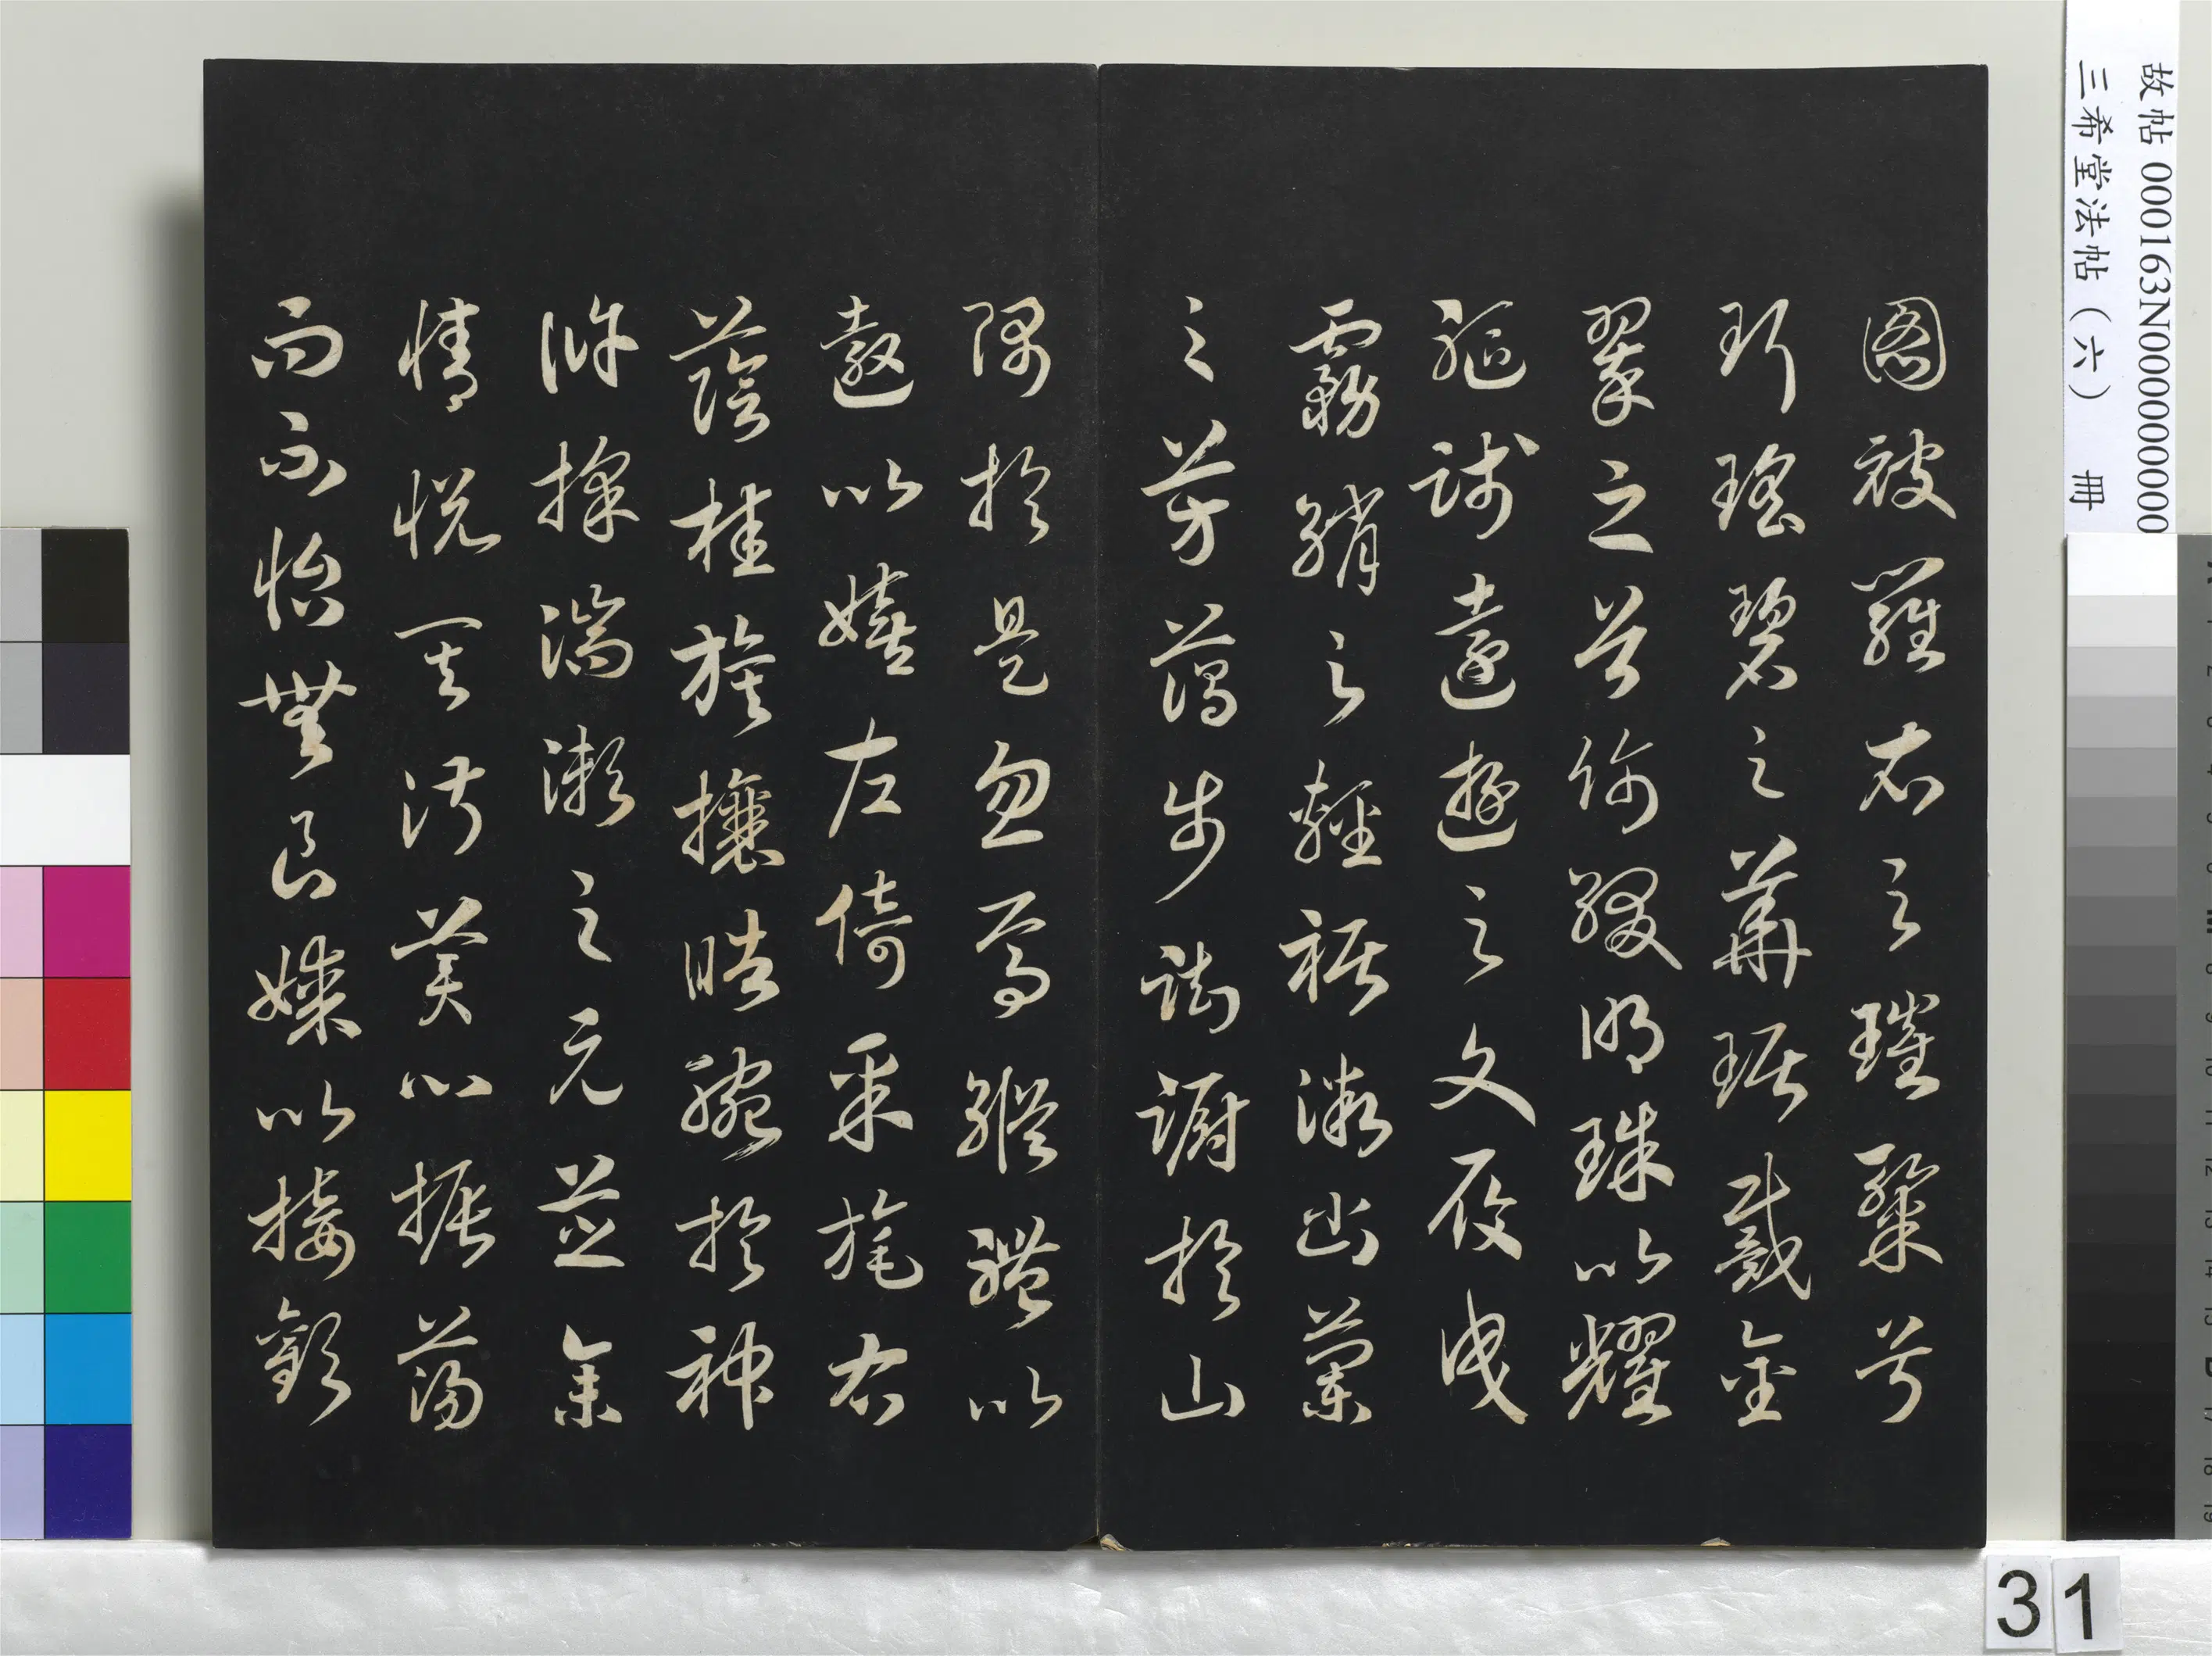 圖被羅衣之璀粲兮
珥瑤碧之華琚戴金
翠之首飾綴明珠以耀
軀踐遠遊之文履曳
霧綃之輕裾微幽蘭
之芳藹步踟躕於山
隅於是忽焉縱體以
遨以嬉左倚采旄右
蔭桂旗攘皓腕於神
滸採湍瀨之元芝余
情悅其淑美心振蕩
而不怡無良媒以接歡
故帖 000163N000000000
三希堂法帖(六) 冊
31